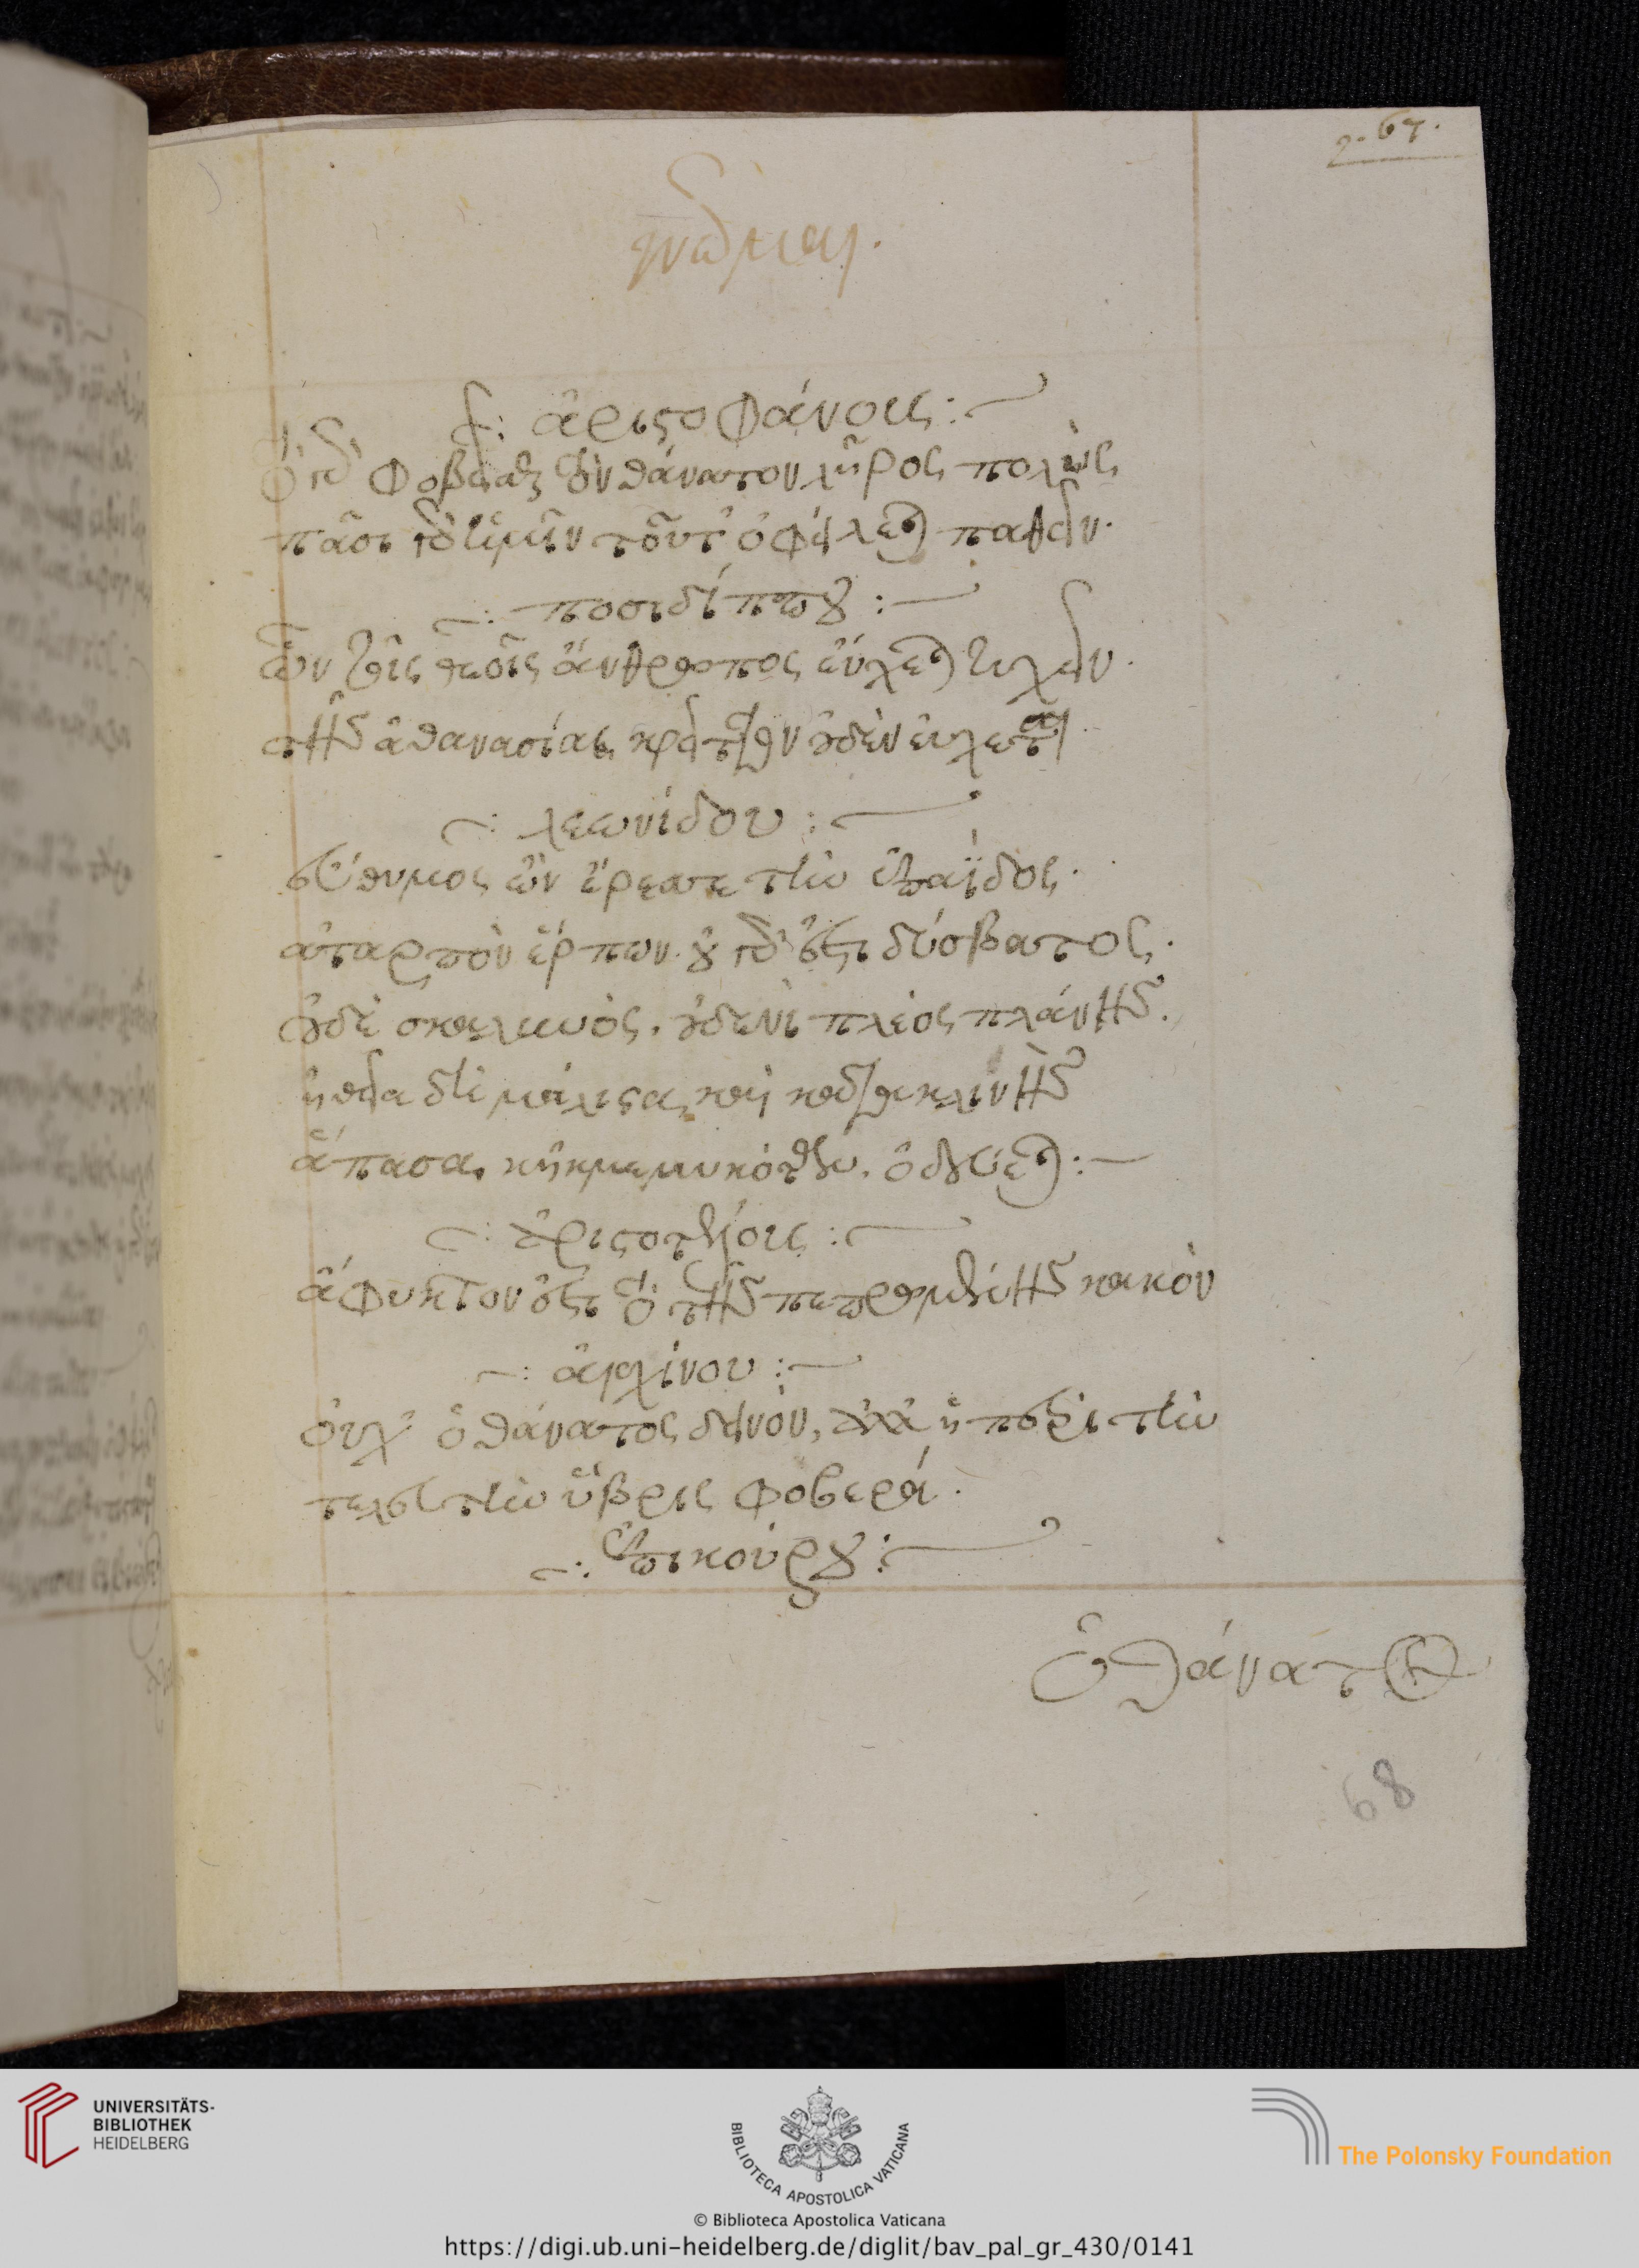 2. 67.
γνῶμαι.
ἀριστοφάνους:
τὸ γὰρ φοβεῖσθαι τὸν θάνατον λῆρος πολὺς
πᾶσι γὰρ ἡμῖν τοῦτ' ὀφείλεται παθεῖν.
ποσιδίππου:
ὧν τοῖς θεοῖς ἄνθρωπος εὔχεται τυχεῖν.
τῆς ἀθανασίας κρεῖττον οὐδὲν εὔχεται
λεωνίδου:
εὔθυμος ὢν ἔρεσσε τὴν ἐπ' ἄϊδος.
ἀταρπὸν ἕρπων. οὐ γάρ ἐστι δύσβατος.
οὐδὲ σκαληνὸς. οὐδενὶ πλέος πλάνης.
ἰθεῖα δὴ μάλιστα, καὶ
ἅπασα, κἠκ μεμυκότων. ὁδεύεται:
ἀριστοτέλους:
ἄφυκτον ἐστι τὸ τῆς πεπρωμένης κακὸν
ἀρχίνου:
οὐχ' ὁ θάνατος δεινὸν, ἀλλὰ ἡ περὶ τὴν
τελευτὴν ὕβρις φοβερά.
ἐπικούρου:
ὁ θάνατος
68
UNIVERSITÄTS-
BIBLIOTHEK
HEIDELBERG
BIBLIOTECA APOSTOLICA VATICANA
The Polonsky Foundation
© Biblioteca Apostolica Vaticana
https://digi.ub.uni-heidelberg.de/diglit/bav_pal_gr_430/0141